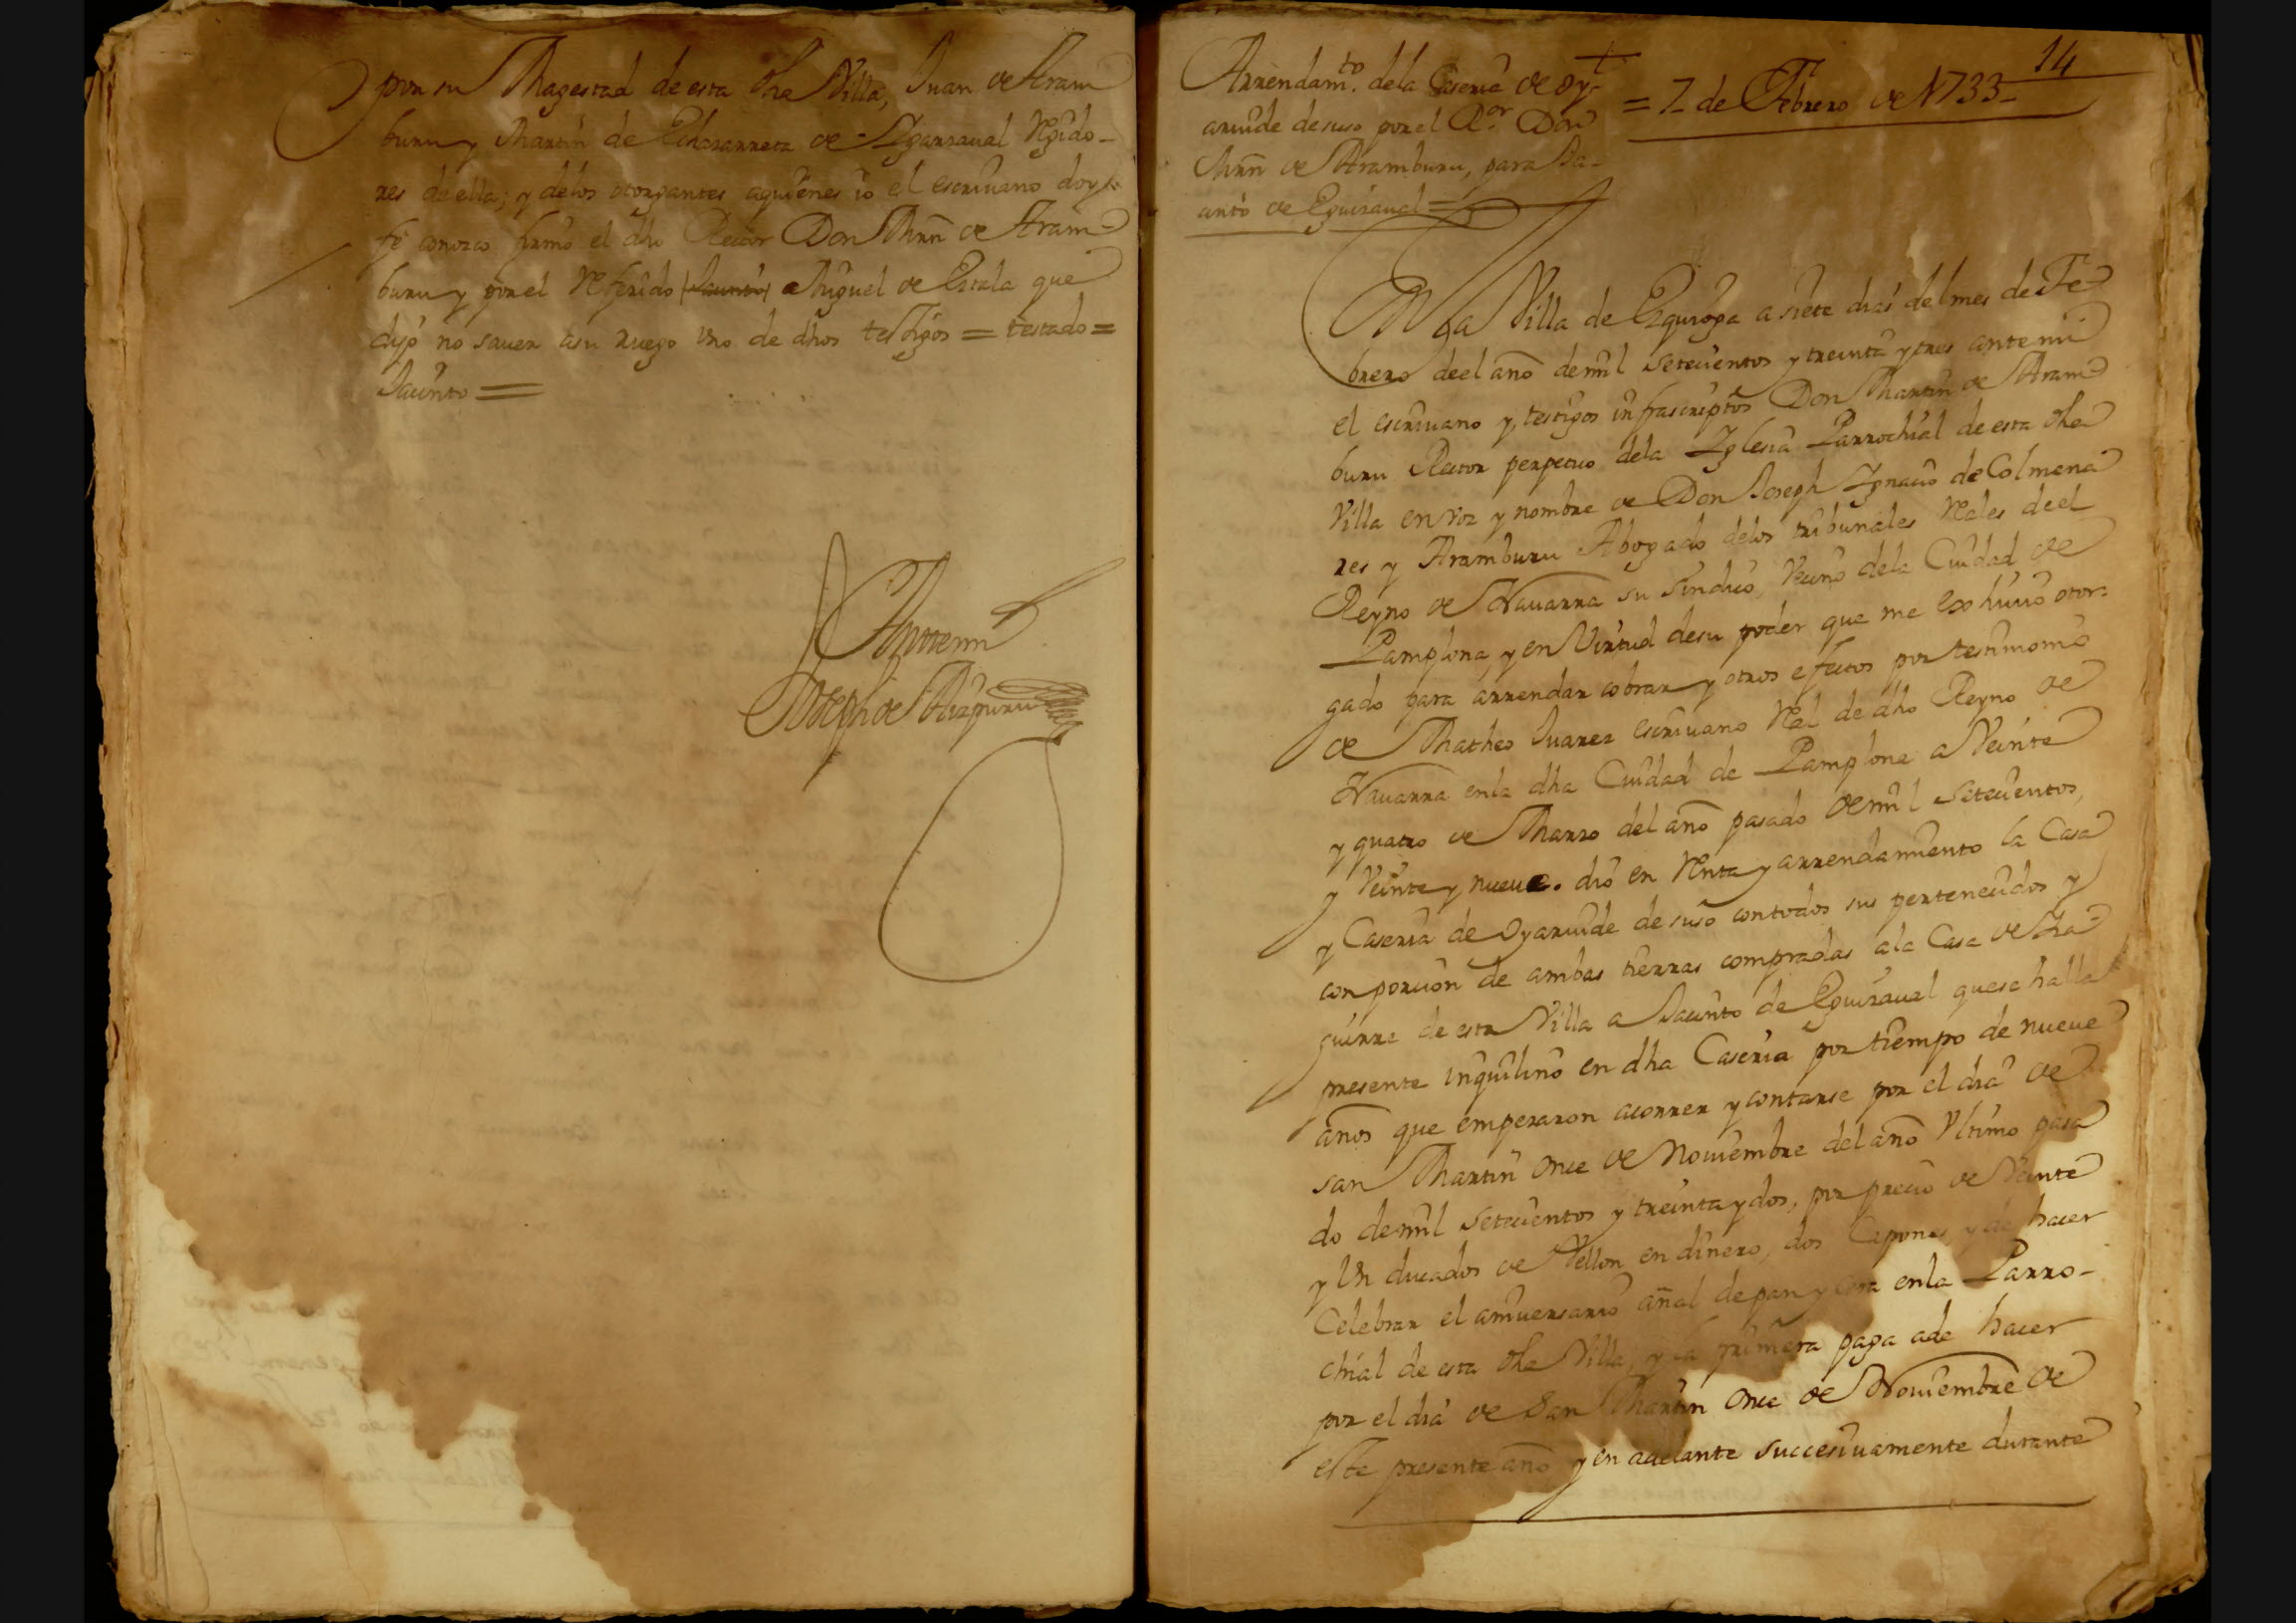 por su Magestad de esta dha Villa, Juan de Aram
buru y Martin de Echazarreta de Ygarzaval Regido-
res de ella; y delos otorgantes aquiénes io el escriuano doy
fé conozco firmó el dho Rector Don Mrñ de Aram-
buru y por el Referido (Jacinto) Miguel de Estala que
dijo no sauer asu ruego vno de dhos testigos = testado =
Jacinto =
Antemi
Joseph de Aizpuru
14
Arrendamto. dela Caseria de oy-
aruide de suso por el Ror. Don
Mrñ de Aramburu, para Ja-
cinto de Eguizaual =
= 7 de Febrero de 1733-
En La Villa de Ezquioga a siete dias del mes de Fe-
brero deel año demil setecientos y treinta y tres ante mi
el escriuano y testigos infrascriptos Don Martin de Aram-
buru Rector perpetuo dela Yglesia Parrochial de esta dha
Villa en voz y nombre de Don Joseph Ygnacio de Colmena
res y Aramburu Abogado delos tribunales Rales deel
Reyno de Nauarra su sindico, Vecino dela Ciudad de
Pamplona, y en Virtud desu poder que me exhiuió otor-
gado para arrendar cobrar y otros efectos por testimonio
de Matheo Juarez escriuano Ral de dho Reyno de
Nauarra enla dha Ciudad de Pamplona a Veinte
y quatro de Marzo del año pasado demil setecientos,
y Veinte y nueue. dio en Renta y arrendamiento la Casa
y Caseria de Oyaruide de suso contodos sus pertenecidos y
con porcion de ambas tierras compradas ala Casa de Ma-
guirre de esta Villa a Jacinto de Eguizaual quese halla
presente inquilino en dha Caseria por tiempo de nueue
años que empezaron acorrer y contarse por el dia de
san Martin Once de Nouiembre del año Vltimo pasa
do demil setecientos y treinta y dos, por precio de Veinte
y Vn ducados de Vellon en dinero, dos Capones, y de hacer
Celebrar el aniuersario añal de pan y cera enla Parro-
chial de esta dha Villa, y la primera paga ade hacer
por el dia de San Martin Once de Nouiembre de
este presente año y en adelante successiuamente durante